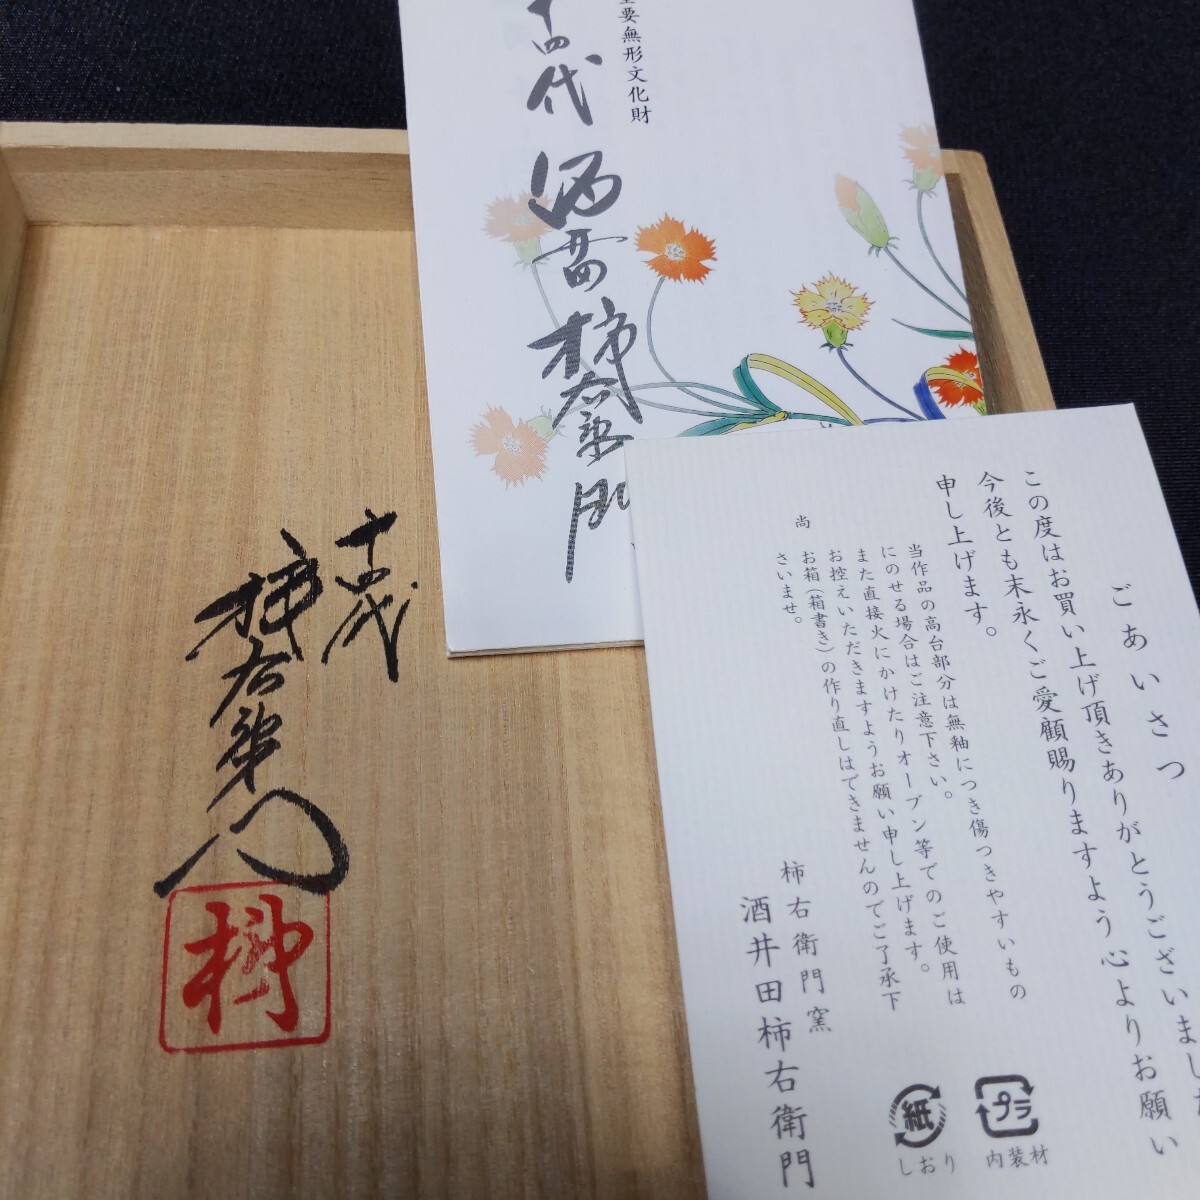 重要無形文化財
十四代 酒井田柿右衛門
十四代
柿右衛門
柿
ごあいさつ
この度はお買い上げ頂きありがとうございました
今後とも末永くご愛顧賜りますよう心よりお願い
申し上げます。
当作品の高台部分は無釉につき傷つきやすいもの
にのせる場合はご注意下さい。
また直接火にかけたりオーブン等でのご使用は
お控えいただきますようお願い申し上げます。
尚 お箱(箱書き)の作り直しはできませんのでご了承下
さいませ。
柿右衛門窯
酒井田柿右衛門
紙
しおり
プラ
内装材